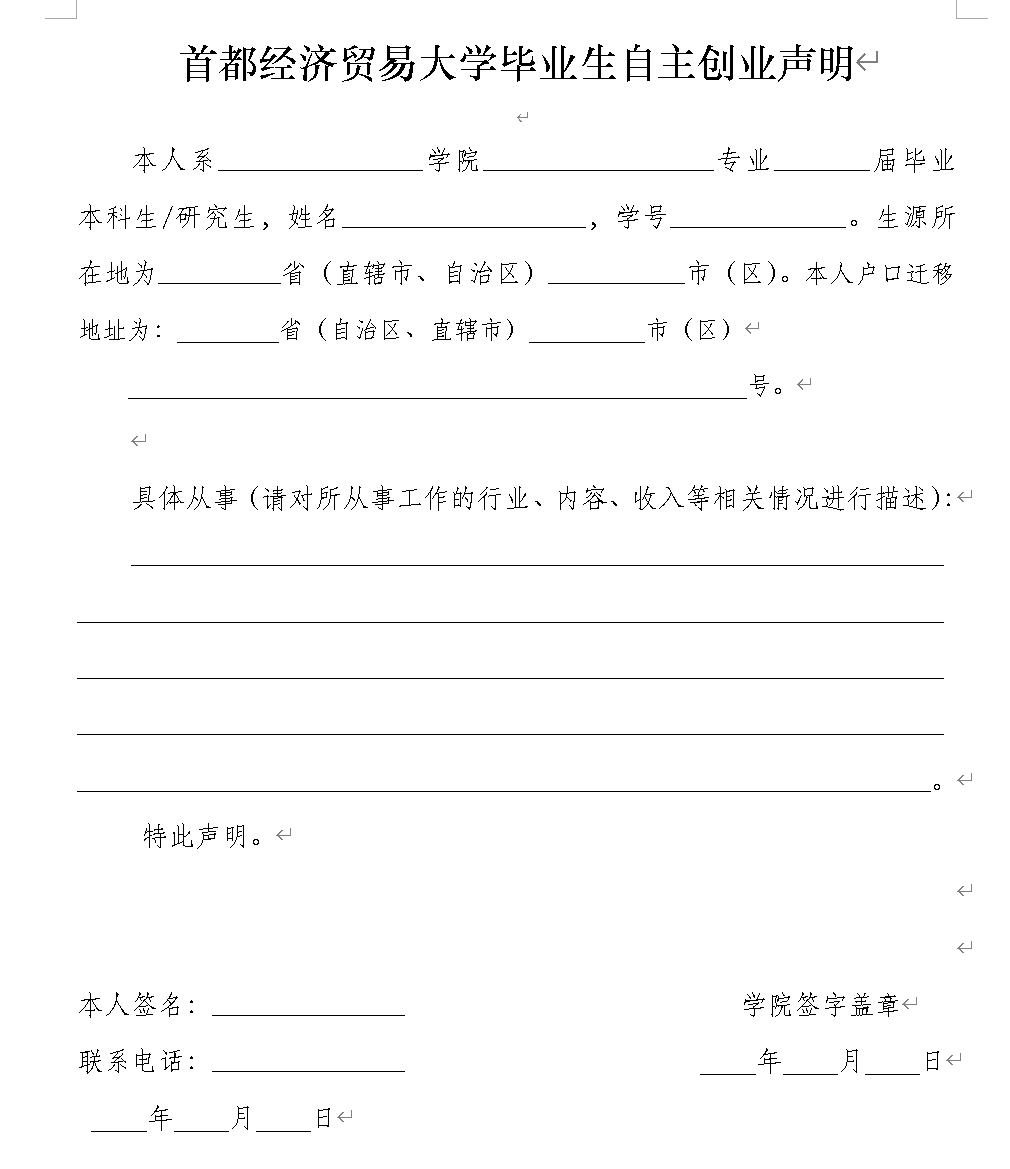 首都经济贸易大学毕业生自主创业声明
本人系________学院________专业____届毕业
本科生/研究生，姓名________，学号________。生源所
在地为____省（直辖市、自治区）____市（区）。本人户口迁移
地址为：____省（自治区、直辖市）____市（区）
________________号。
具体从事（请对所从事工作的行业、内容、收入等相关情况进行描述）：
________________。
特此声明。
本人签名：________ 学院签字盖章
联系电话：________ ____年____月____日
____年____月____日